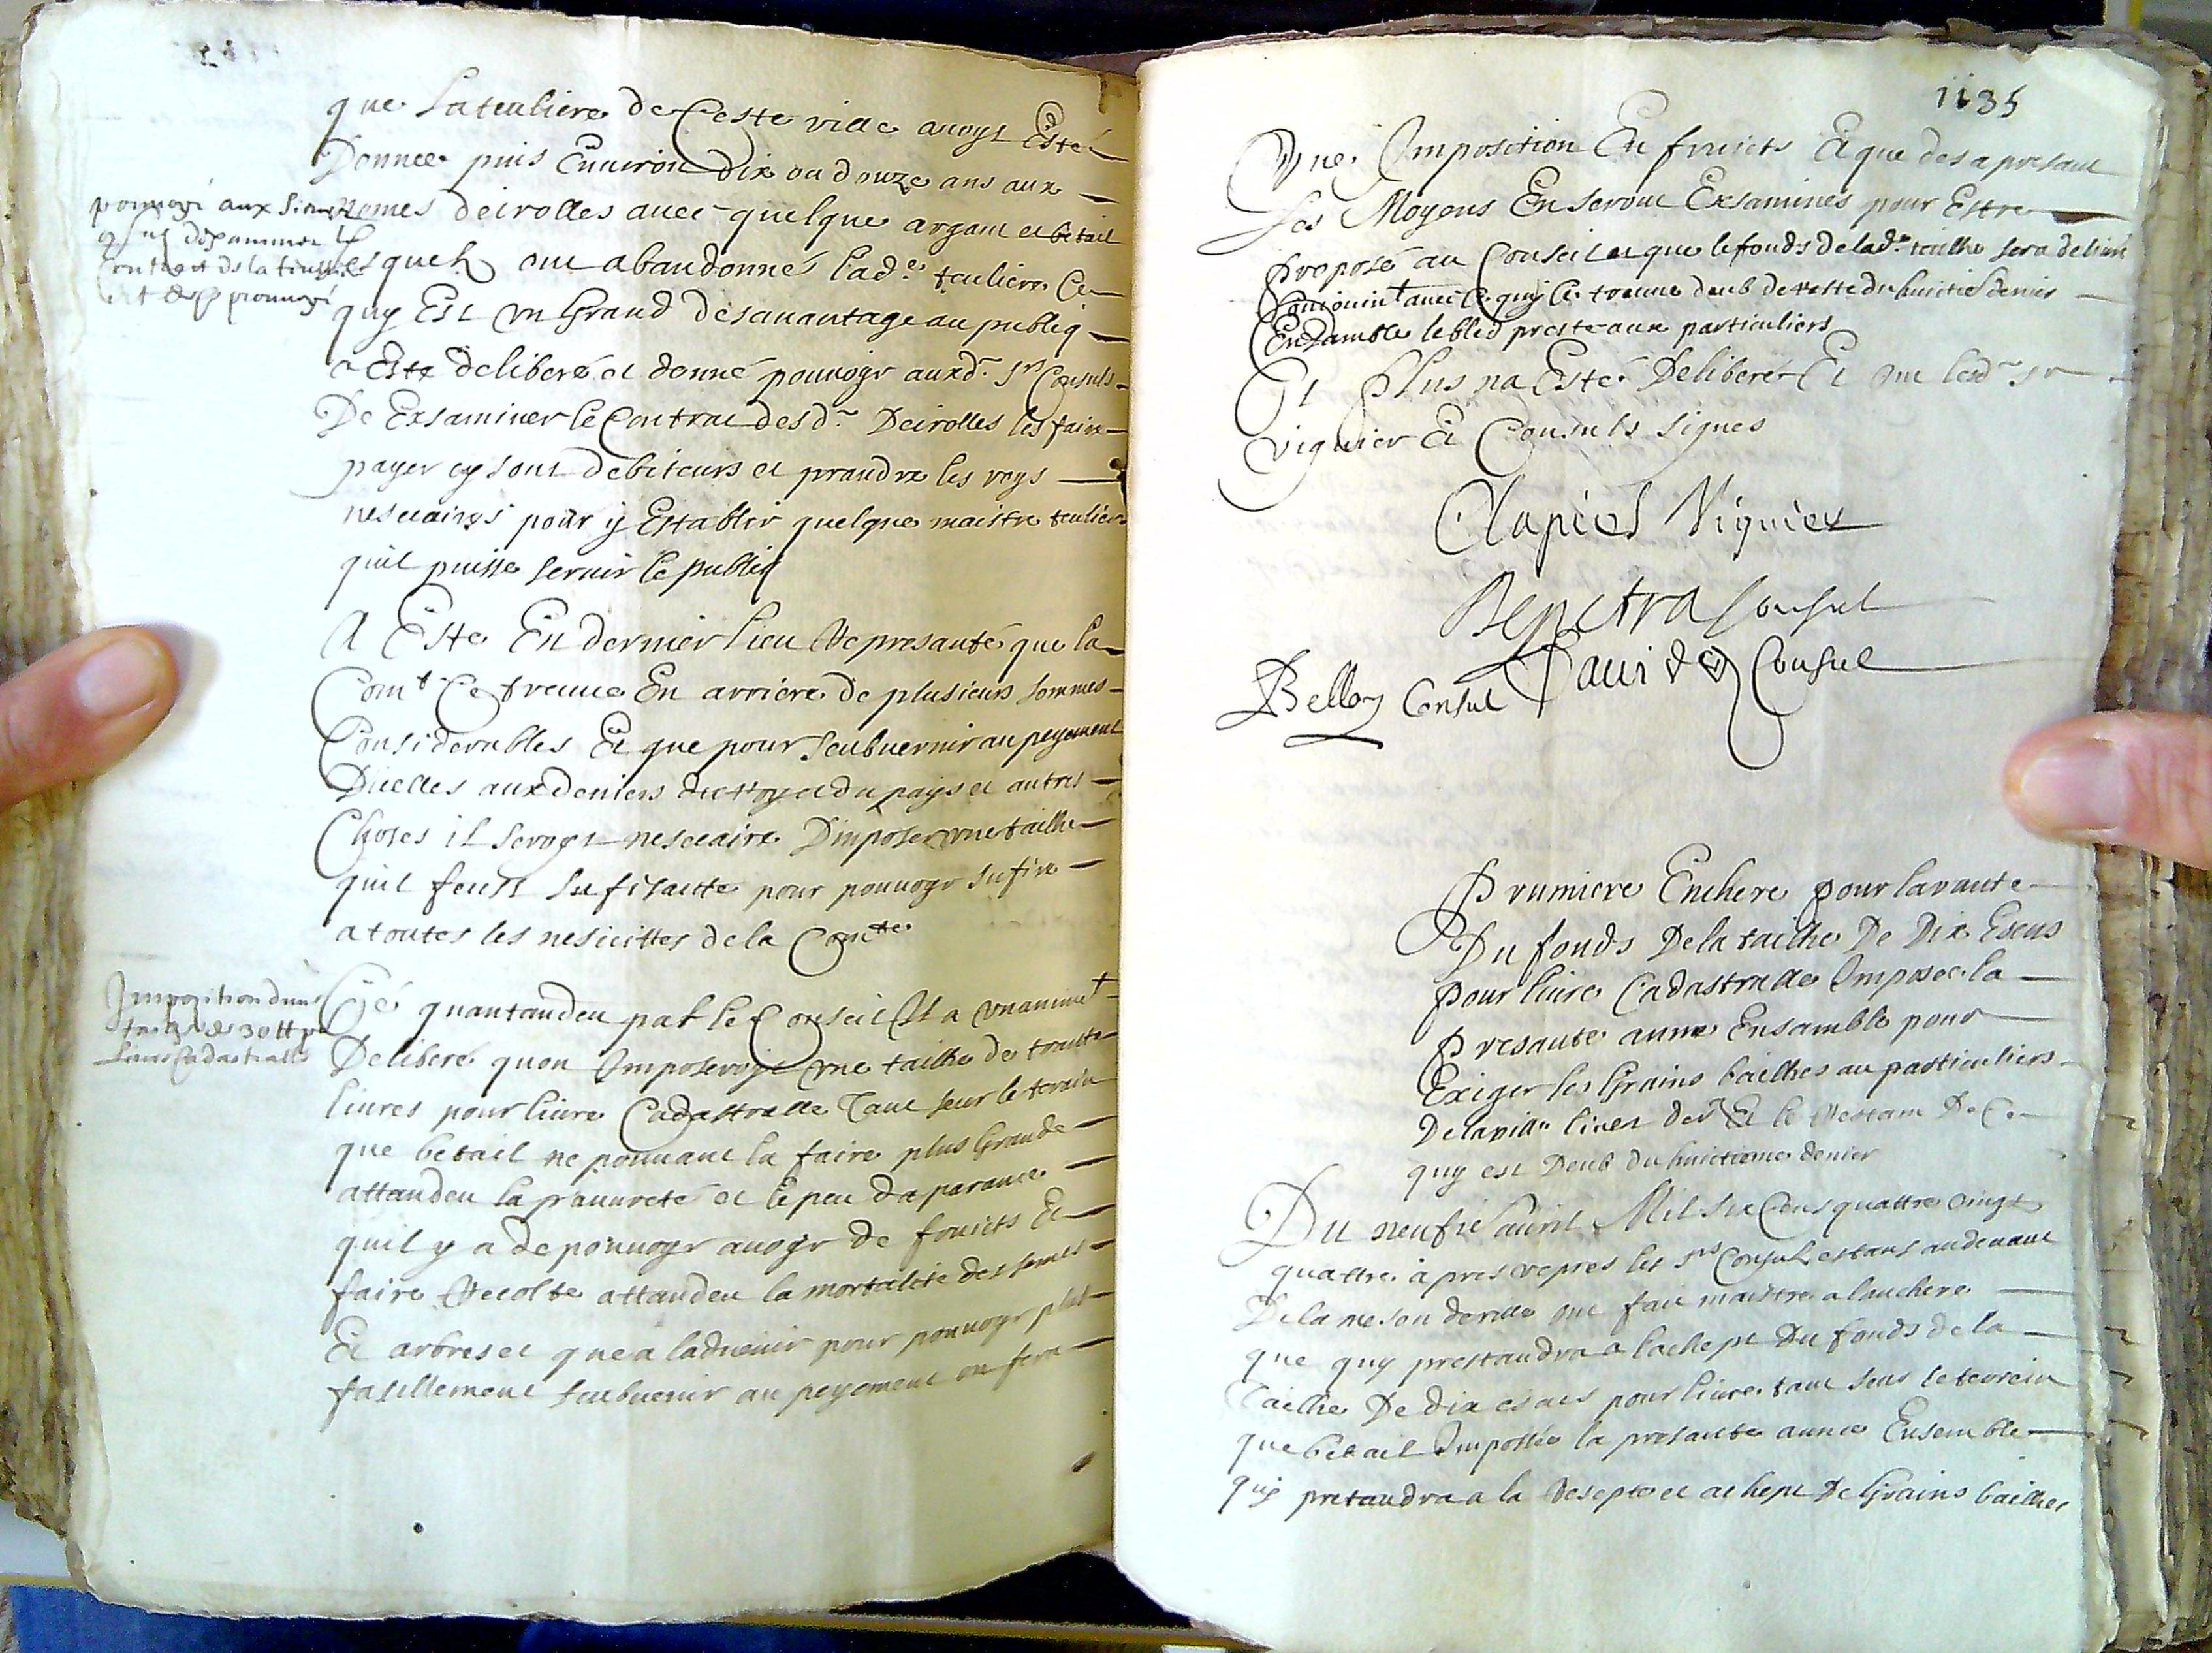 que la teuliere de Ceste ville avoyt Esté
Donnée puis Environ dix ou douze ans aux
nomes deirolles avec quelque argant et betail
lesquels ont abandonnés lad.e teuliere Ce
quy Est un Grand desavantage au publiq
a Este deliberé et donné pouvoyr auxd. srs Consuls
De Exsaminer le Contrat desd. Deirolles les faire
payer cy sont debiteurs et prandre les voys
nesecaires pour y Establir quelque maistre teulier
quil puisse servir le publiq
pouvoyr aux sieurs
Contract de la
A Este En dernier lieu Represanté que la
Comt Ce treuve En arriere de plusieurs sommes
Considerables Et que pour Soubvenir au peyement
Dicelles aux deniers du Roy et du pays et autres
Choses il seroyt nesecaire Dimposer une tailhe
quil feust sufisante pour pouvoyr sufire
a toutes les nesecittes de la Comte
Imposition dune
tailhe de 30 tt pr
livre Cadastralle
Ce quantandeu par le Conseil Il a unanimet
Deliberé quon Imposeroyt une tailhe de trante
livres pour livre Cadastralle Tant seur le terrain
que betail ne pouvant la faire plus Grande
attandeu la pauvreté et le peu daparance
quil y a de pouvoyr avoyr de fruicts Et
faire Recolte attandeu la mortalité des semes
Et arbres et que a ladvenir pour pouvoyr plus
fasillement soubvenir au peyement on fera
1135
Une Imposition En fruicts Et que des a presant
Les Moyens En seront Exsamines pour Estre
Proposé au Conseil et que le fonds de lad.e tailhe sera deliuré
Conjoinct avec Ce quy Ce treuve deub de reste du huictie denier
Ensamble le bled preste aux particuliers
Et Plus na Esté Deliberé Et ont lesd. srs
viguier Et Consuls Signes
Clapiers Viguier
Consul
David Consul
Bellon Consul
Prumiere Enchere pour la vante
Du fonds De la tailhe De Dix Escus
Pour livre Cadastralle Imposée la
Presante anne Ensamble pour
Exiger les Grains bailhes au particuliers
De la ville liver der Et le Restant De Ce
quy est Deub du huictieme denier
Du neufie avril Mil six Cens quattre vingt
quattre apres vepres les srs Consuls estans audevant
De la meson de ville ont fait maistre a lanchere
que quy prestandra a lachept Du fonds de la
Tailhe De dix escus pour livre tant seur le terrein
que betail Imposée la presante annee Ensemble
quy pretandra a la Resepte et achept De Grains bailhes